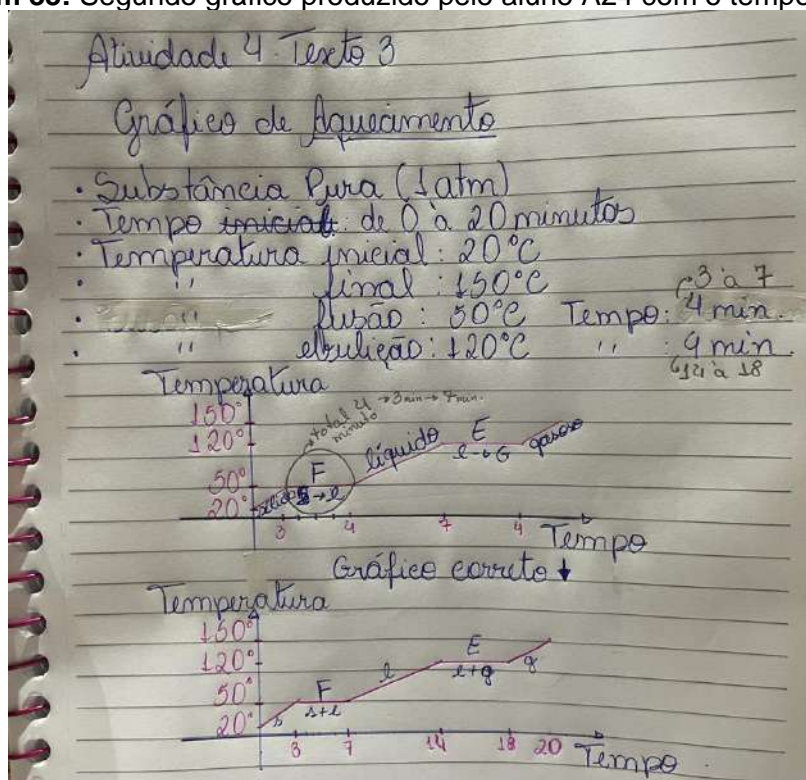 Segundo gráfico produzido pelo aluno A24 com o tempo
Atividade 4. Texto 3
Gráfico de Aquecimento
· Substância Pura (1 atm)
· Tempo inicial: de 0 à 20 minutos
· Temperatura inicial: 20°C
· " final: 150°C
3 à 7
· " fusão: 50°C Tempo: 4 min.
· " ebulição: 120°C " : 4 min.
14 à 18
Temperatura
150°
120°
50°
20°
total 4 minuto → 3 min → 7 min.
sólido
F
s → l
líquido
E
l → G
gasoso
3 4 7 4 Tempo
Gráfico correto ↓
Temperatura
150°
120°
50°
20°
s
F
s+l
l
E
l+g
g
3 7 14 18 20 Tempo.